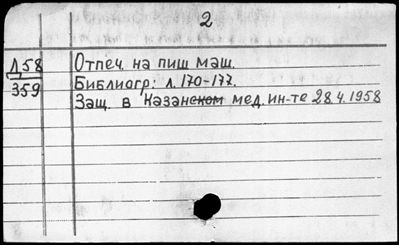 2
Д58 Отпеч. на пиш маш.
359 Библиогр: л. 170-177.
Защ. в Казанском мед. ин-те 28.4.1958